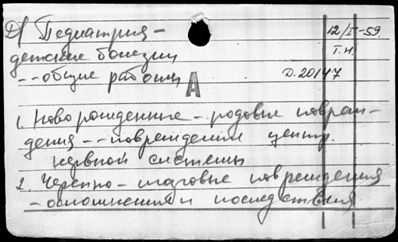 D) Педиатрия –
детские болезни
-- общие работы
А
12/I-59.
Т.Н.
D.20147
1. Новорожденные – родовые повреж-
дения -- повреждения центр.
нервной системы
2. Черепно-мозговые повреждения
– осложнения и последствия